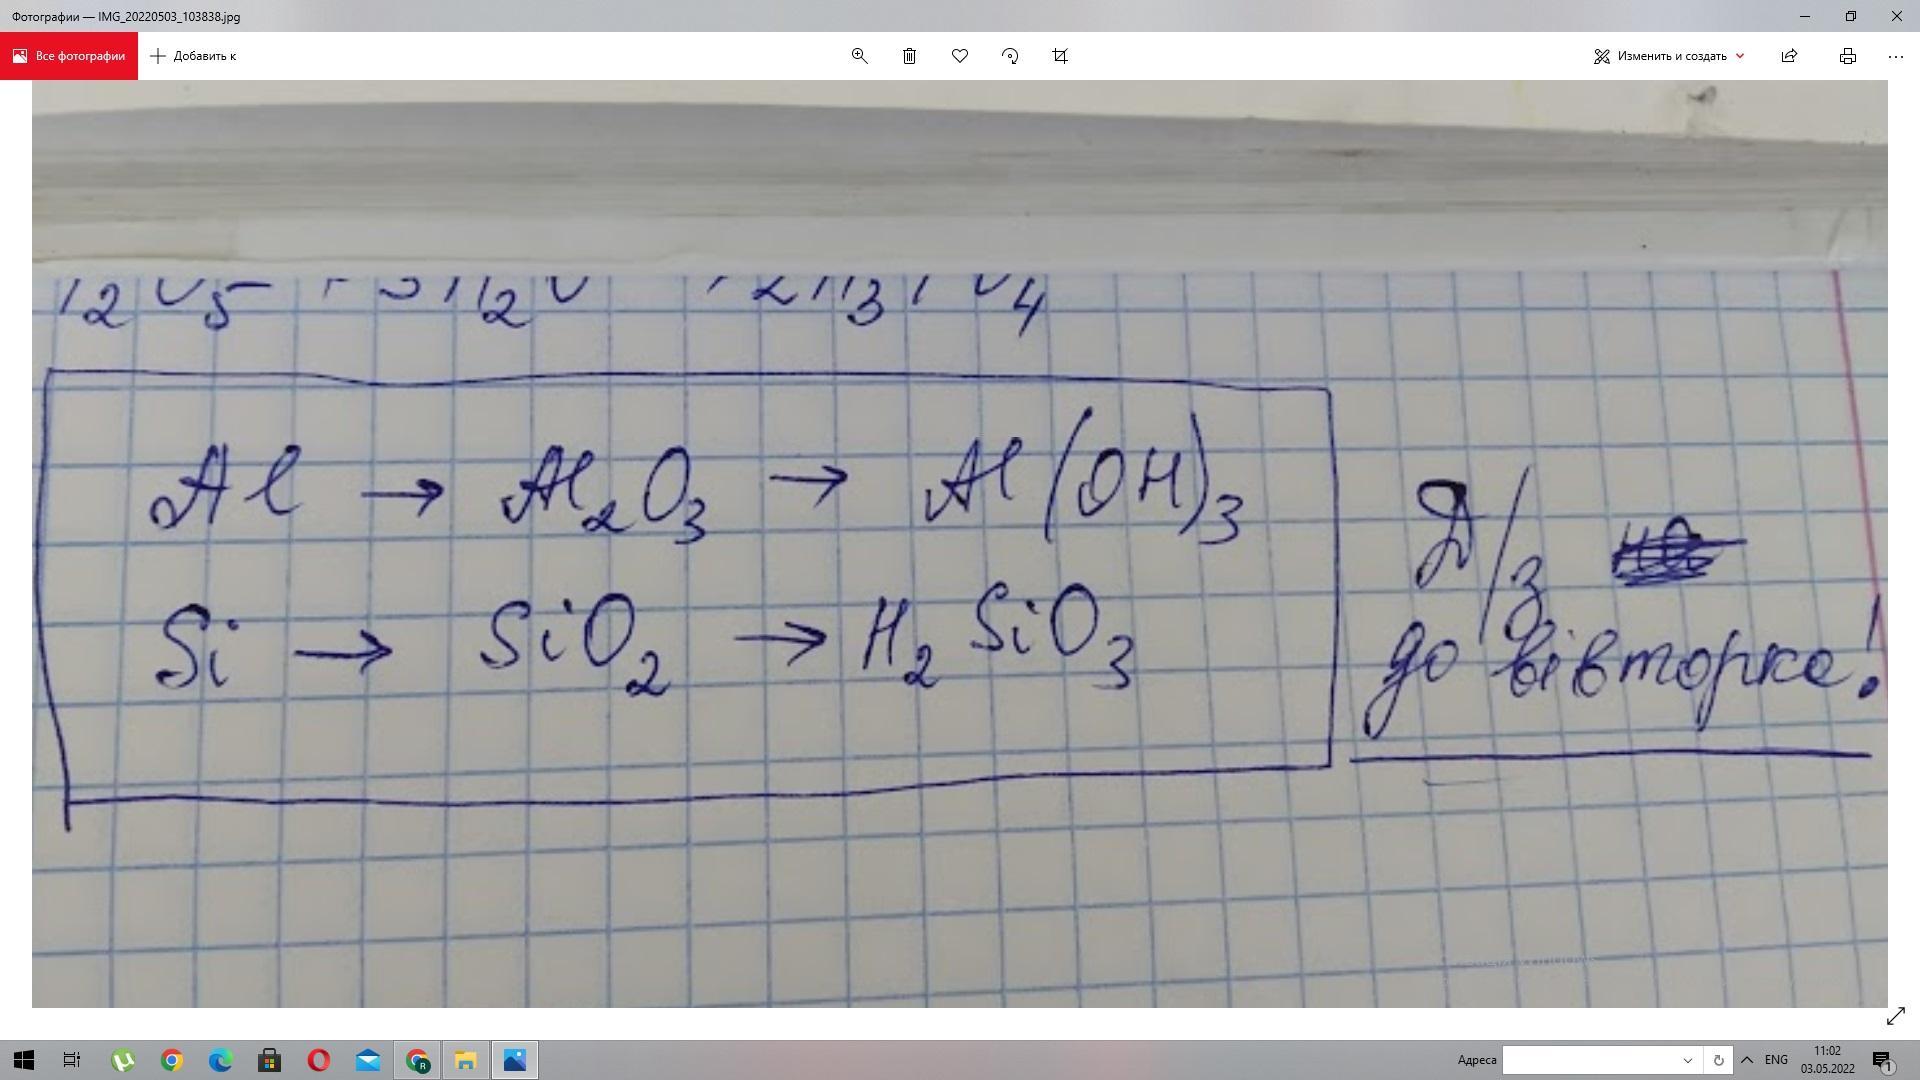 Фотографии — IMG_20220503_103838.jpg
Все фотографии
Добавить к
Изменить и создать
Al → Al₂O₃ → Al(OH)₃
Si → SiO₂ → H₂SiO₃
Д/з
до вівторка!
Адреса
ENG
11:02
03.05.2022
1